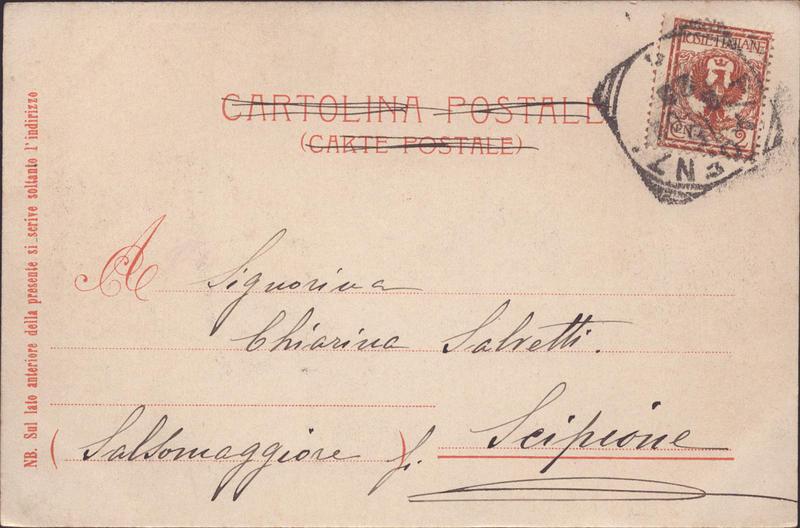 POSTE ITALIANE
CENT. 2
CARTOLINA POSTALE
(CARTE POSTALE)
A Signorina
Chiarina Salvetti.
(Salsomaggiore) f. Scipione
NB. Sul lato anteriore della presente si scrive soltanto l'indirizzo